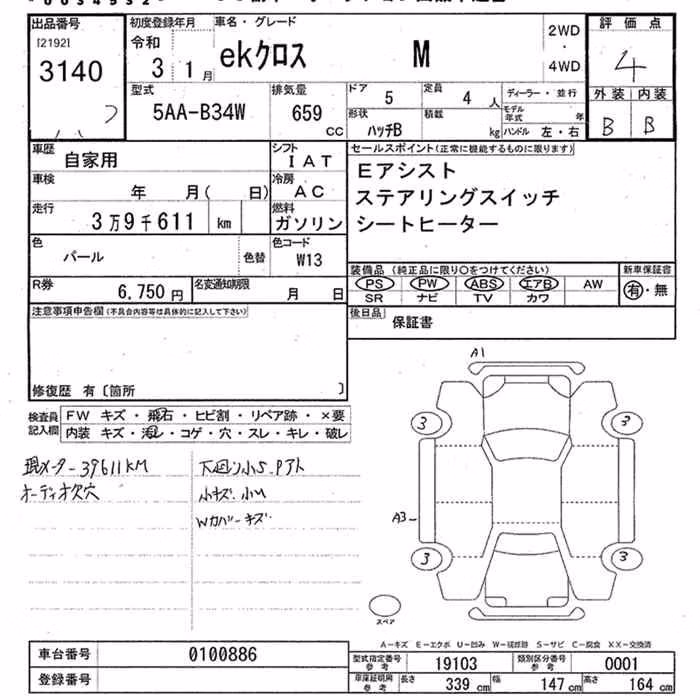 出品番号
[2192]
3140
初度登録年月
令和
3 1月
車名・グレード
ekクロス M
2WD
・
4WD
評価点
4
外装 内装
B B
型式
5AA-B34W
排気量
659
CC
ドア
5
定員
4 人
ディーラー・並行
形状
ハッチB
積載
kg
モデル年式
年
ハンドル 左・右
車歴
自家用
シフト
IAT
車検
年 月( 日)
冷房
AC
走行
3万9千611 km
燃料
ガソリン
色
パール
色替
色コード
W13
R券
6,750 円
名変通知期限
月 日
セールスポイント(正常に機能するものに限ります)
Eアシスト
ステアリングスイッチ
シートヒーター
装備品 (純正品に限り○をつけてください)
新車保証書
PS PW ABS エアB AW
SR ナビ TV カワ
有・無
後日品
保証書
注意事項申告欄(不具合内容等は具体的に記入して下さい)
修復歴 有〔箇所 〕
検査員記入欄
FW キズ・飛石・ヒビ割・リペア跡・×要
内装 キズ・汚レ・コゲ・穴・スレ・キレ・破レ
現メーター39611KM
オーディオ欠穴
下廻り小S.Pアト
小キズ.小M
Wカバーキズ
A1
3 3
A3
3 3
スペア
A-キズ E-エクボ U-凹み W-波跡 S-サビ C-腐食 XX-交換済
車台番号
0100886
登録番号
型式指定番号 参考
19103
類別区分番号 参考
0001
車庫証明用 参考
長さ 339 cm 幅 147 cm 高さ 164 cm